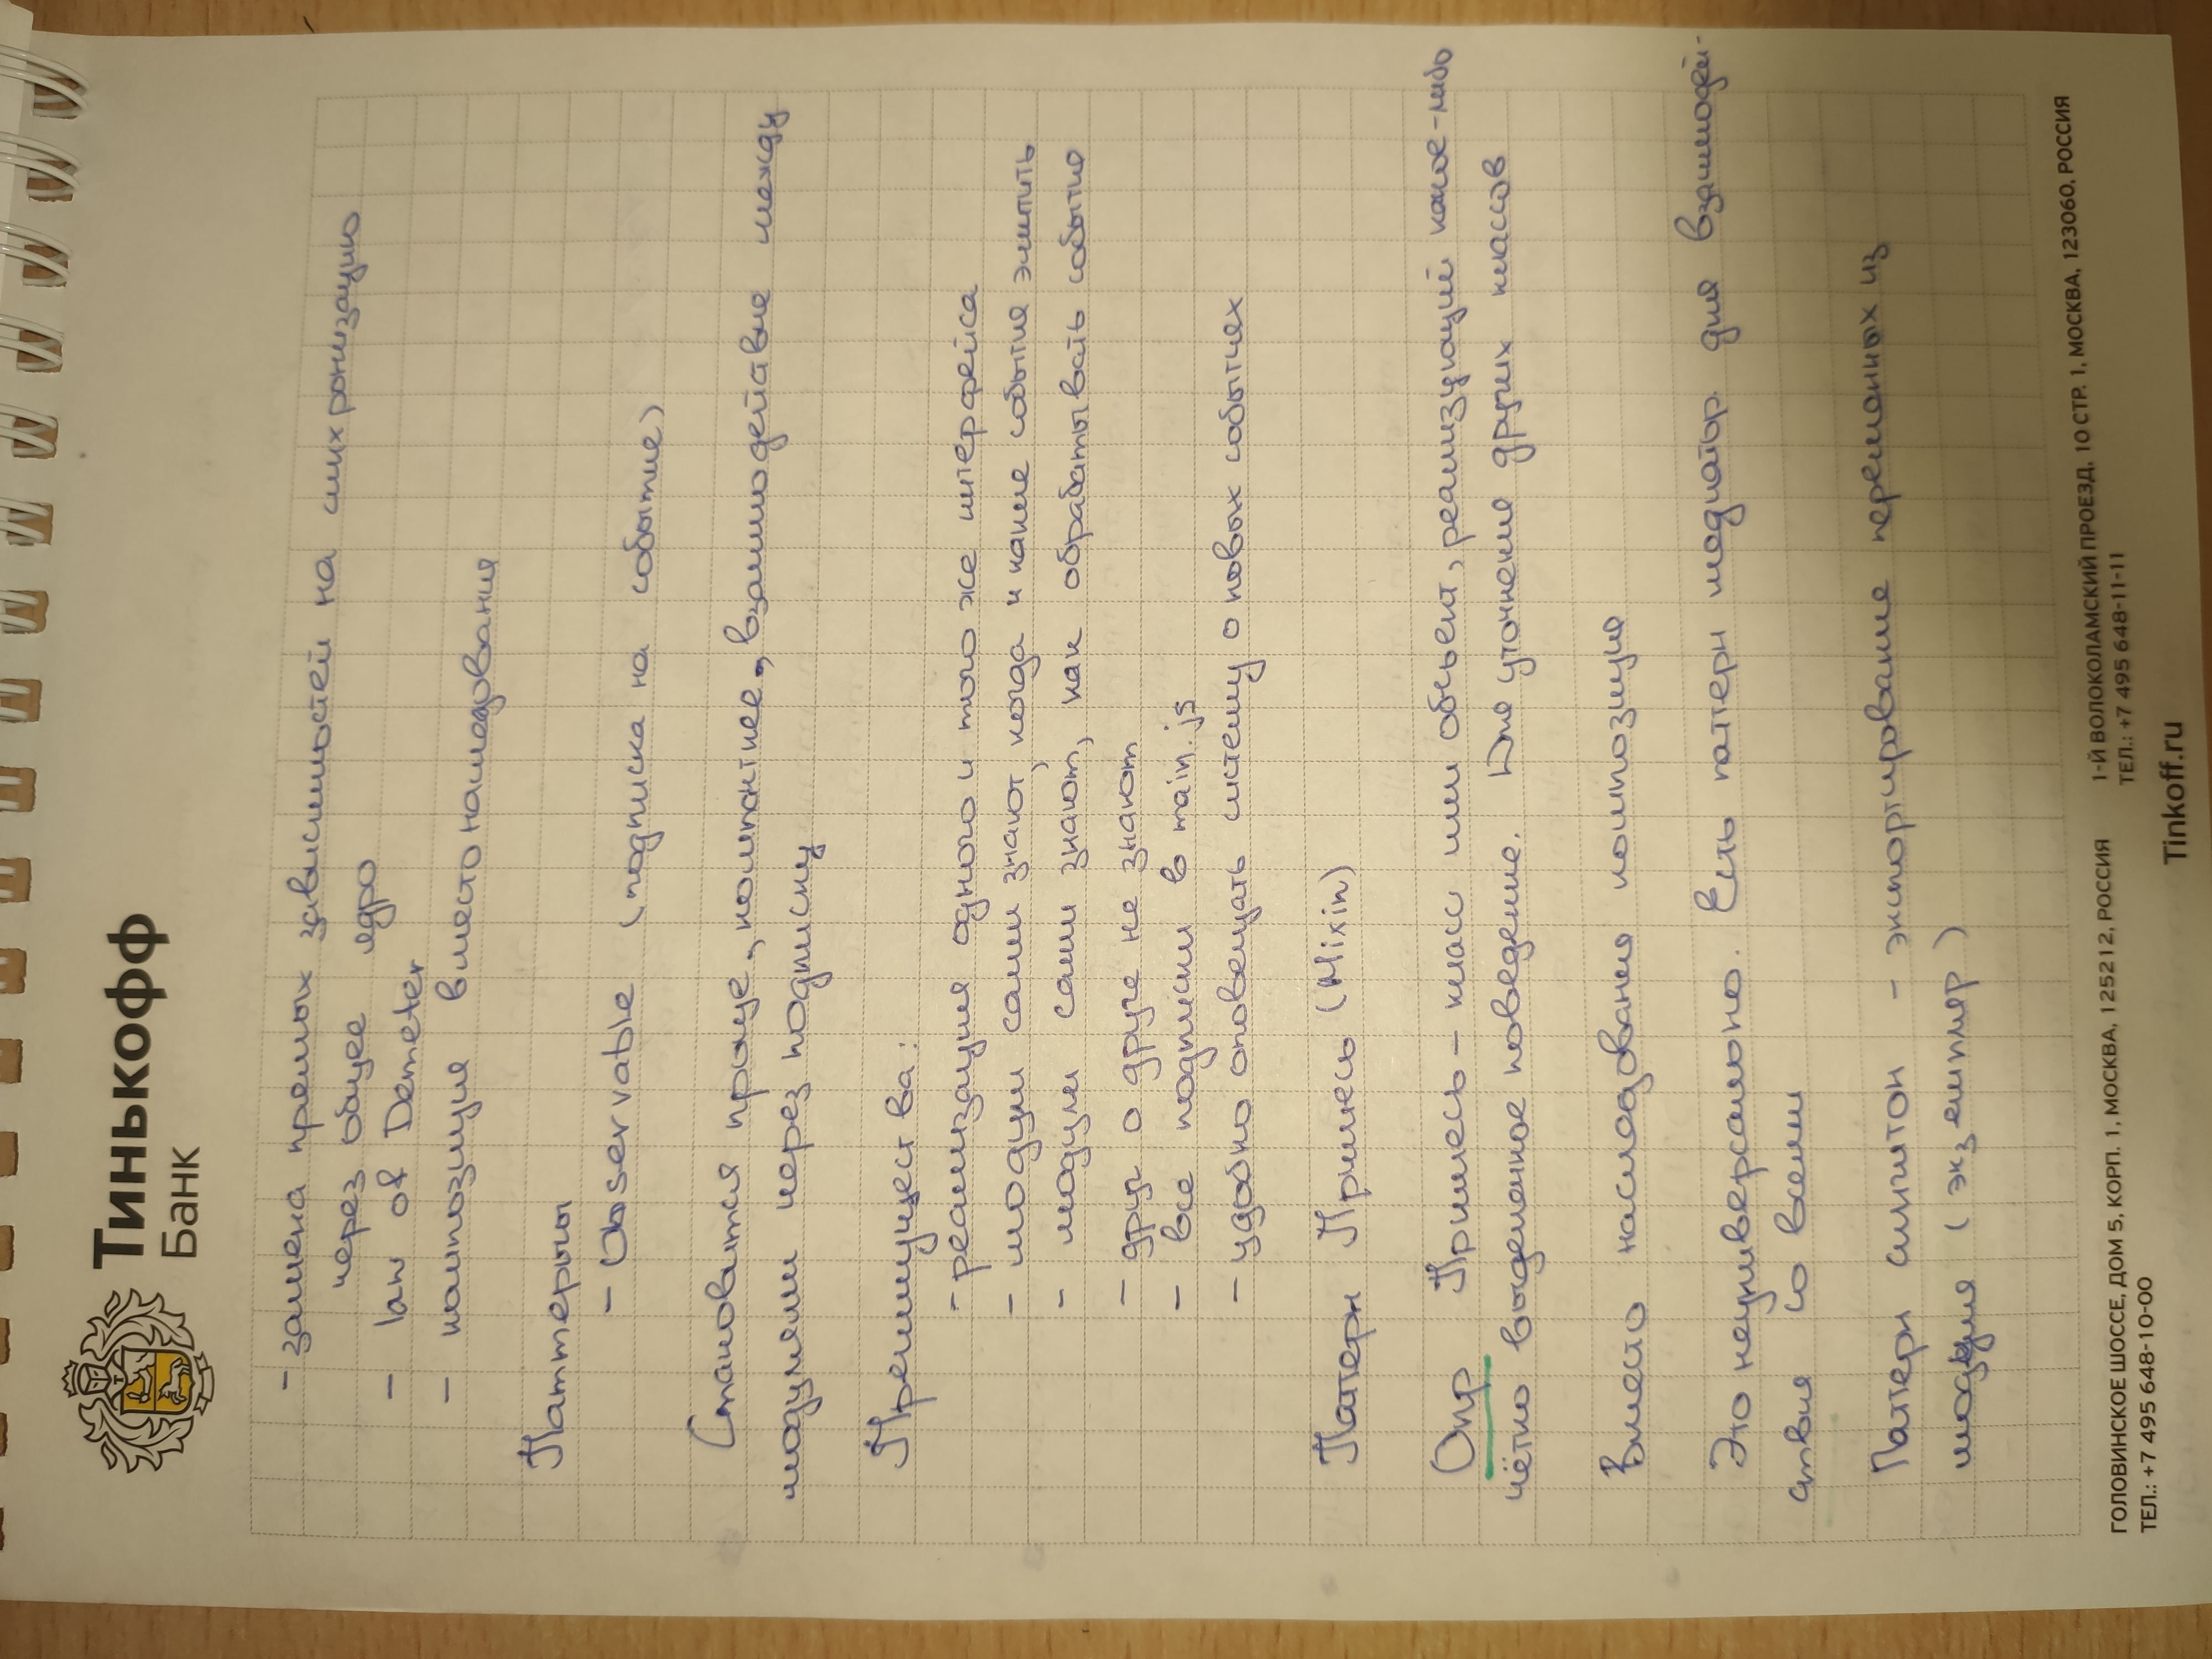 Тинькофф
Банк
- замена прямых зависимостей на синхронизацию
через общее ядро
- law of Demeter
- композиция вместо наследования
Паттерны
- Observable (подписка на событие)
Становится проще, компактнее, взаимодействие между
модулями через подписку
Преимущества:
- реализация одного и того же интерфейса
- модули сами знают, когда и какие события эмитить
- модули сами знают, как обрабатывать события
- друг о друге не знают
- все подписки в main.js
- удобно оповещать систему о новых событиях
Паттерн Примесь (Mixin)
Опр Примесь - класс или объект, реализующий какое-либо
чётко выделенное поведение. Для уточнения других классов
Вместо наследования композиция
Это неуниверсально. Есть паттерн медиатор для взаимодей-
ствия со всеми
Паттерн синглтон - экспортирование переменных из
модуля (экземпляр)
ГОЛОВИНСКОЕ ШОССЕ, ДОМ 5, КОРП. 1, МОСКВА, 125212, РОССИЯ
ТЕЛ.: +7 495 648-10-00
1-Й ВОЛОКОЛАМСКИЙ ПРОЕЗД, 10 СТР. 1, МОСКВА, 123060, РОССИЯ
ТЕЛ.: +7 495 648-11-11
Tinkoff.ru